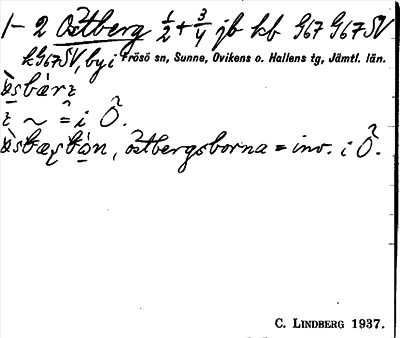 1-2 Östberg ½ + ¾ jb kb G67 G67SV
kG67SV, by i Frösö sn, Sunne, Ovikens o. Hallens tg, Jämtl. län.
~ = i Ö.
östbergsborna = inv. i Ö.
C. LINDBERG 1937.